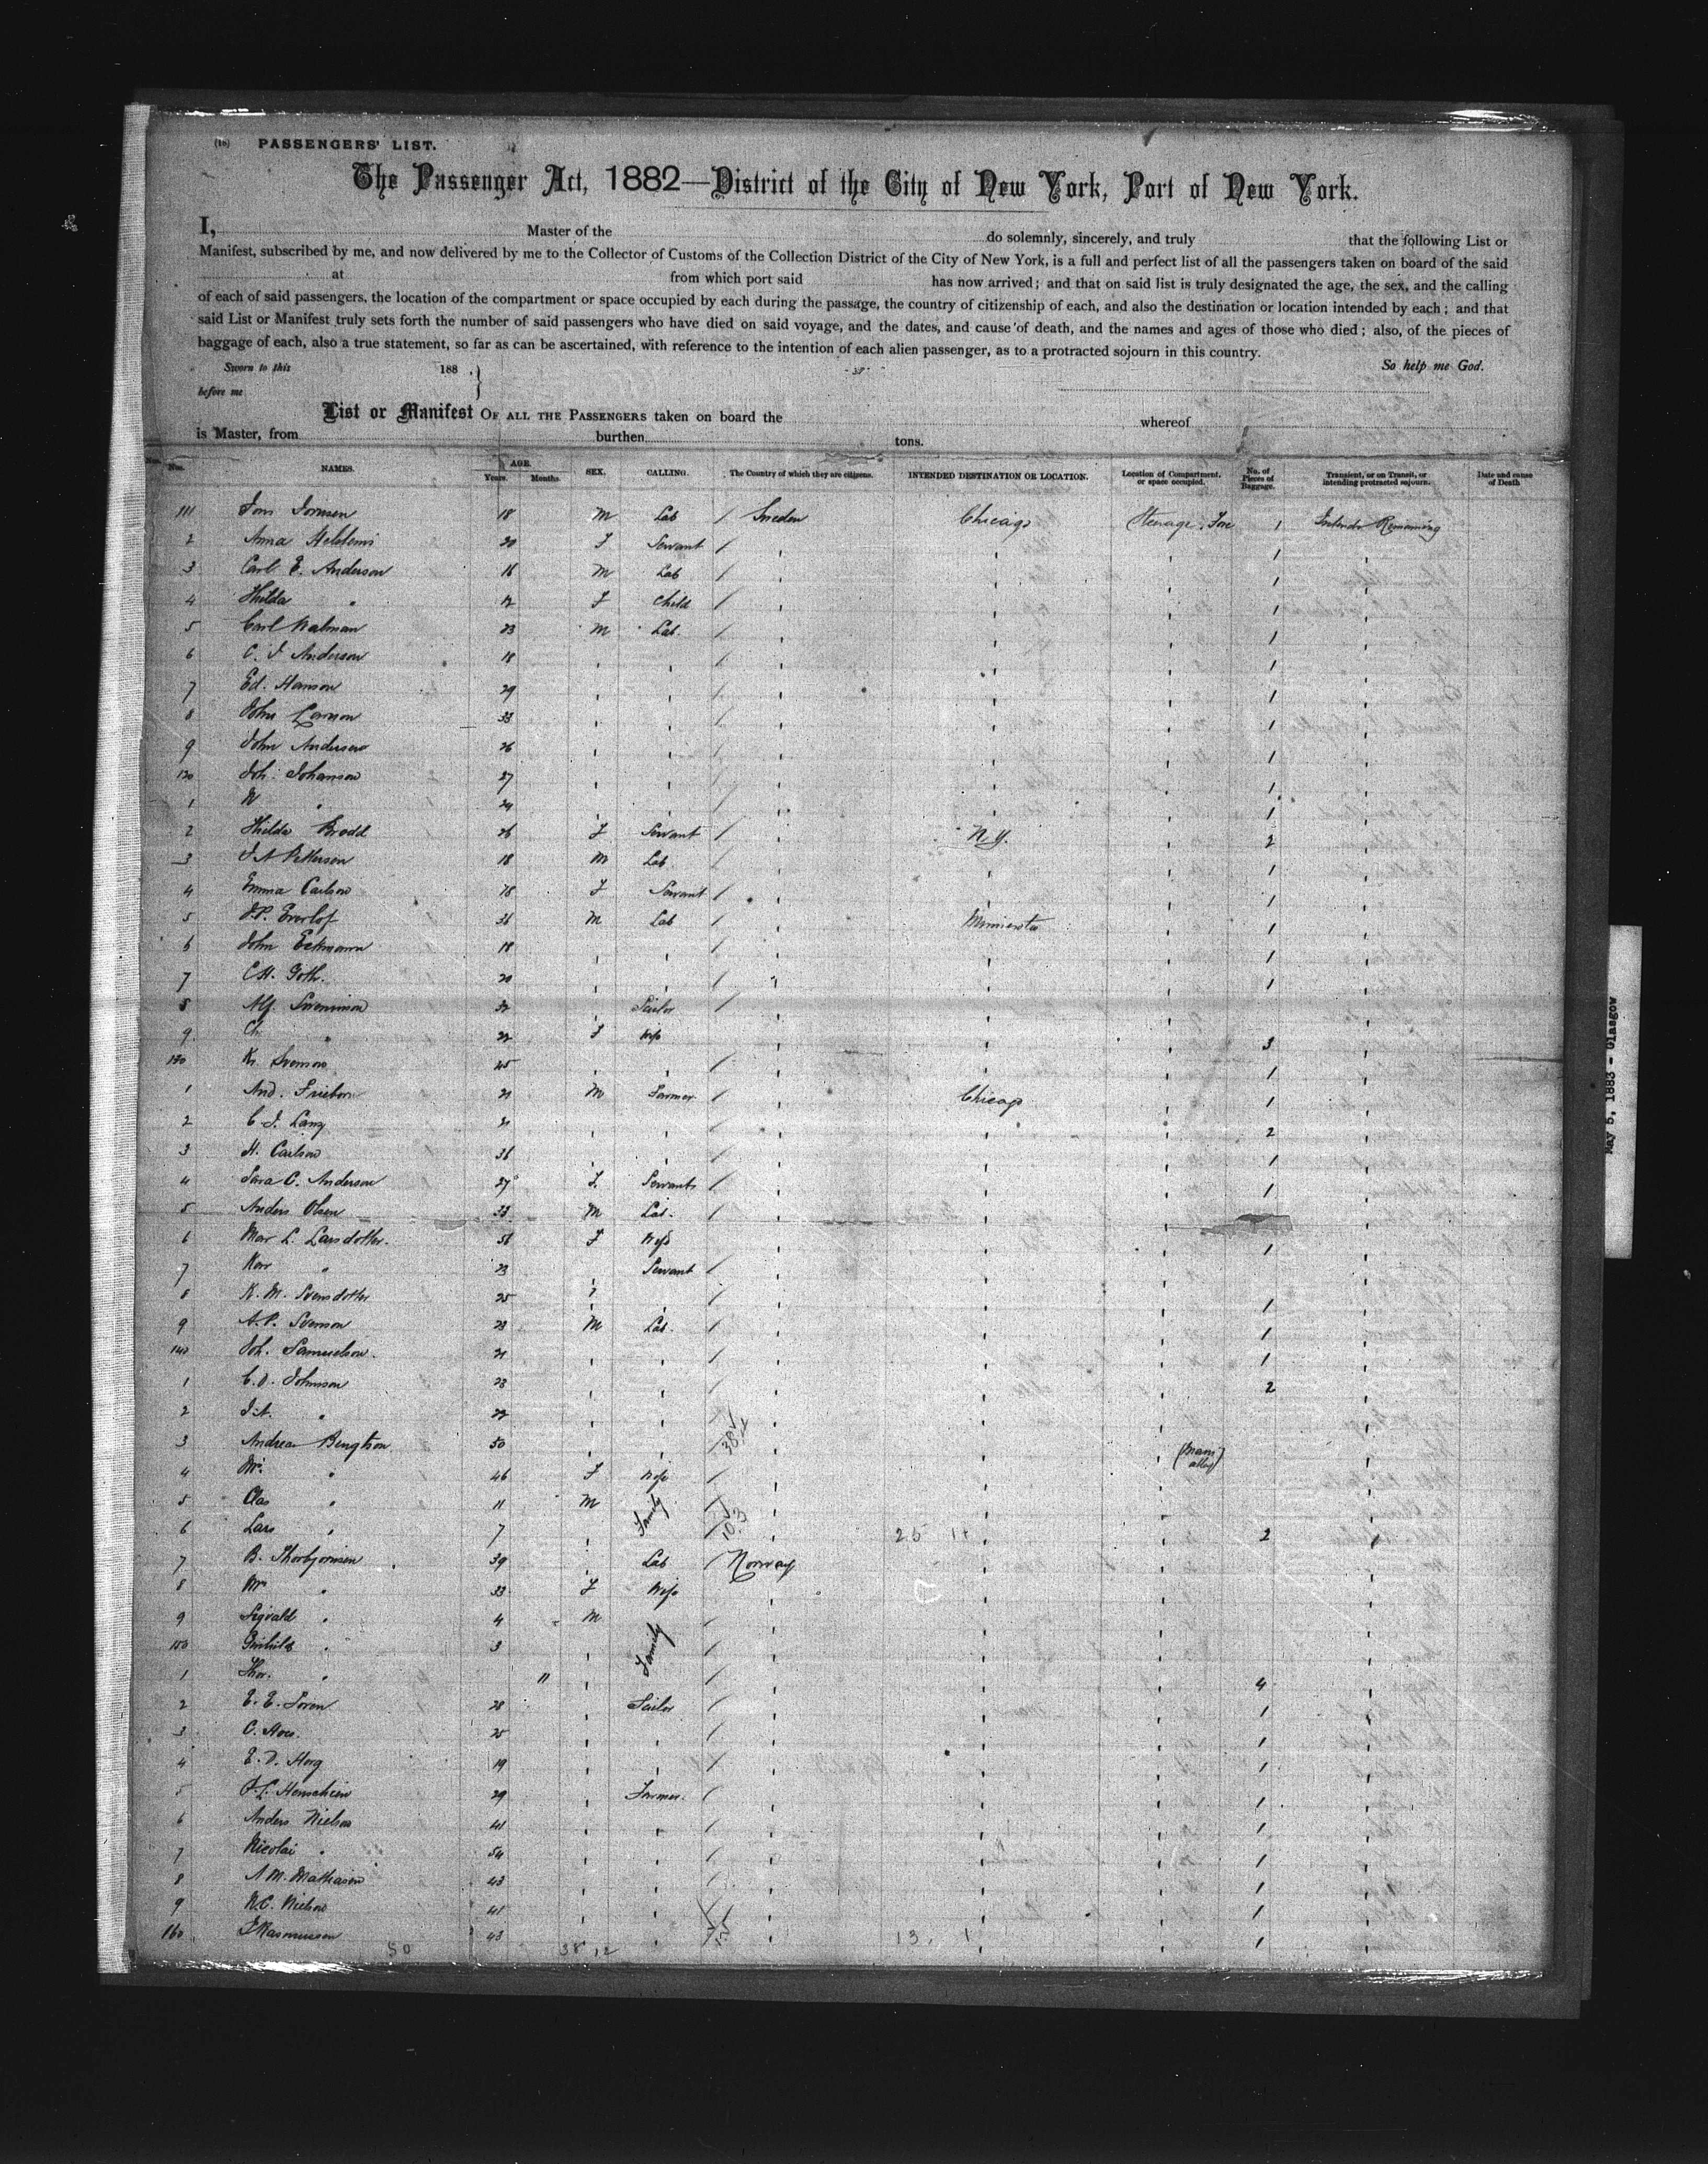 (16) PASSENGERS' LIST.
The Passenger Act, 1882—District of the City of New York, Port of New York.
I, Master of the do solemnly, sincerely, and truly that the following List or
Manifest, subscribed by me, and now delivered by me to the Collector of Customs of the Collection District of the City of New York, is a full and perfect list of all the passengers taken on board of the said
at from which port said has now arrived; and that on said list is truly designated the age, the sex, and the calling
of each of said passengers, the location of the compartment or space occupied by each during the passage, the country of citizenship of each, and also the destination or location intended by each; and that
said List or Manifest truly sets forth the number of said passengers who have died on said voyage, and the dates, and cause of death, and the names and ages of those who died; also, of the pieces of
baggage of each, also a true statement, so far as can be ascertained, with reference to the intention of each alien passenger, as to a protracted sojourn in this country.
Sworn to this 188 . } So help me God.
before me
List or Manifest OF ALL THE PASSENGERS taken on board the whereof
is Master, from burthen tons.
Nos. NAMES. AGE. Years. Months. SEX. CALLING. The Country of which they are citizens. INTENDED DESTINATION OR LOCATION. Location of Compartment, or space occupied. No. of Pieces of Baggage. Transient, or on Transit, or intending protracted sojourn. Date and cause of Death
111 18 M Lab / Sweden Chicago Steerage, Fore 1 Intends Remaining
2 Anna 20 F Servant / " " " 1 "
3 Carl E. Anderson 16 M Lab / " " " 1 "
4 Hilda " 12 F Child / " " " 1 "
5 Carl 23 M Lab. / " " " 1 "
6 C. J. Anderson 18 " " / " " " 1 "
7 Ed. Hanson 29 " " / " " " 1 "
8 John Larson 33 " " / " " " 1 "
9 John Anderson 26 " " / " " " 1 "
120 Joh. Johanson 27 " " / " " " 1 "
1 N " 24 " " / " " " 1 "
2 Hilda Brodd 26 F Servant / " N.Y. " 2 "
3 J A Petterson 18 M Lab. / " " " 1 "
4 Emma Carlson 18 F Servant / " " " 1 "
5 J.P. 36 M Lab / " Minnesota " 1 "
6 John Eckmann 18 " " / " " " 1 "
7 C.H. Goth. 20 " " / " " " 1 "
8 Alf. Swenson 32 " Sailor / " " " "
9 Ch. " 22 F Wife " " " 3 "
130 K. Svenson 45 " " / " " " 1 "
1 And. Frieborn 21 M Farmer / " Chicago " 1 "
2 C J. Lang 21 " " / " " " 2 "
3 H. Carlson 36 " " / " " " 1 "
4 Sara C. Anderson 27 F. Servants / " " " 1 "
5 Anders Olsen 33 M Lab. / " " " "
6 Mar L. Larsdotter. 56 F Wife " " " 1 "
7 " 23 " Servant / " " " "
8 K. M. Svensdotter 25 " " / " " " 1 "
9 A.P. Svenson 23 M Lab. / " " " 1 "
140 Joh. Samuelson. 21 " " / " " " 1 "
1 C.O. Johnson 23 " " / " " " 2 "
2 J.A. " 22 " " / " " " "
3 Andreas Bengtson 50 " " / " " " "
4 Mrs. " 46 F Wife / " " "
5 Clas " 11 M Family / " " " "
6 Lars " 7 " / " 25 1+ " 2 "
7 B. Thorbjornsen 39 " Lab / Norway " " "
8 Mrs " 33 F Wife " " " "
9 Sigvald " 4 M Family / " " " "
150 " 3 " / " " " "
1 Thor. " 11 " / " " " 4 "
2 E. E. Soren 28 " Sailor / " " " 1 "
3 C. 25 " " / " " " 1 "
4 E. D. Horg 19 " " / " " " 1 "
5 29 " Farmer. / " " " 1 "
6 Anders Nielsen 41 " " / " " " 1 "
7 Nicolai " 54 " " / " " " 1 "
8 A M. Mathiasen 43 " " / " " " 1 "
9 N.C. Nielsen 41 " " / " " " 1 "
160 Rasmussen 43 " " " 13. 1 " 1 "
50 38 12
May 5, 1883 - Glasgow